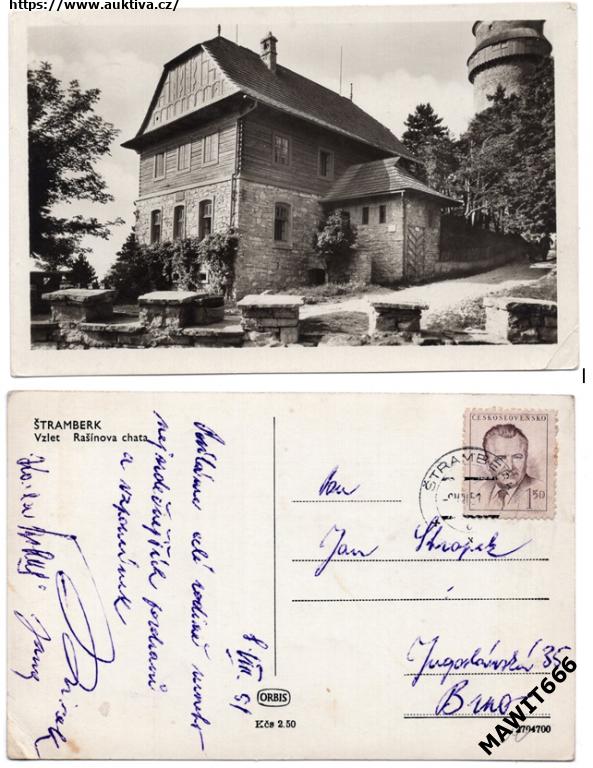 https://www.auktiva.cz/
ŠTRAMBERK
Vzlet Rašínova chata
celé rodině mnoho
nejsrdečnějších pozdravů
a vzpomínek
8. VIII. 51
Jana
ORBIS
Kčs 2.50
ČESKOSLOVENSKO
1.50
ŠTRAMBERK
Pan
Jan
Jugoslávská 35
Brno
2704700
MAWIT666